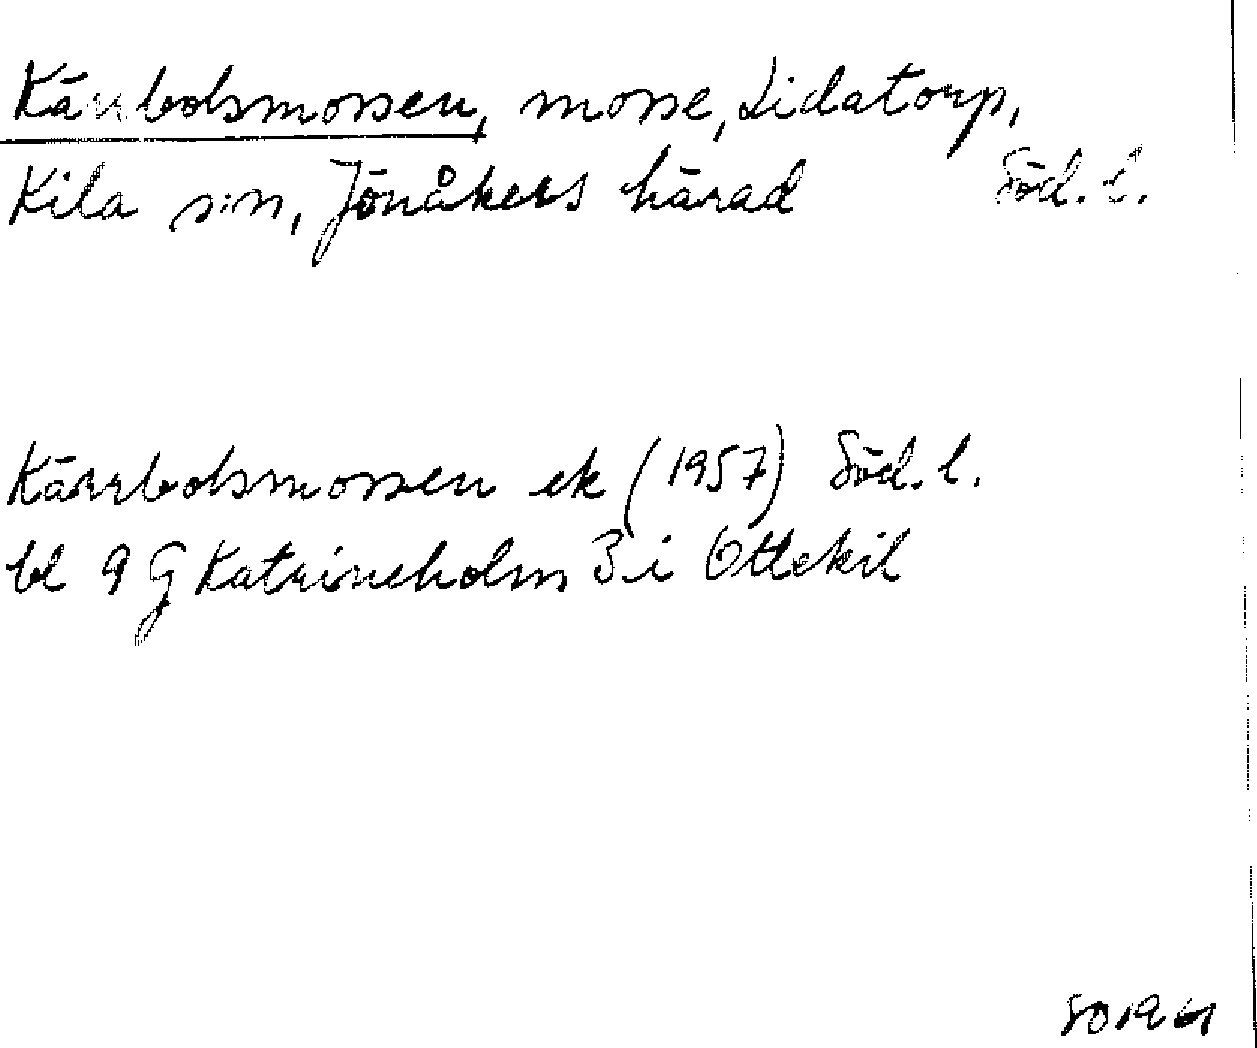 Kärrbolsmossen, mosse, Lidatorp,
Kila s:n, Jönåkers härad Söd. l.
Kärrbolsmossen ek (1957) Söd. l.
bl 9 G Katrineholm 3 i Ottekil